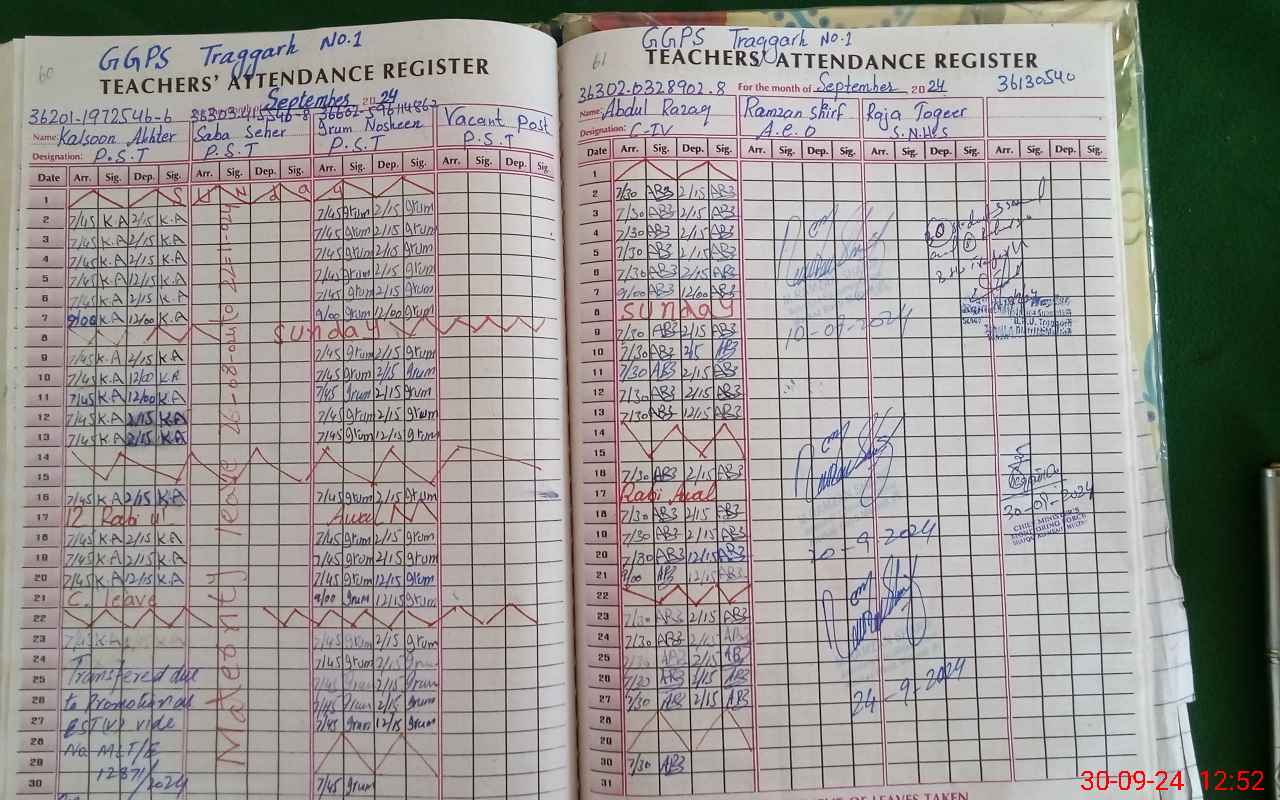 60
GGPS Traggarh No.1
TEACHERS' ATTENDANCE REGISTER
September 2024
36201-1972546-6
Name: Kalsoon Akhter Saba Seher Irum Nosheen Vacant Post
Designation: P.S.T P.S.T P.S.T P.S.T
Date Arr. Sig. Dep. Sig. Arr. Sig. Dep. Sig. Arr. Sig. Dep. Sig. Arr. Sig. Dep. Sig.
1
2 7/45 K.A 2/15 K.A 7/45 Irum 2/15 Irum
3 7/45 K.A 2/15 K.A 7/45 Irum 2/15 Irum
4 7/45 K.A 2/15 K.A 7/45 Irum 2/15 Irum
5 7/45 K.A 12/15 K.A 7/45 Irum 2/15 Irum
6 7/45 K.A 2/15 K.A 7/45 Irum 2/15 Irum
7 9/00 K.A 12/00 K.A 9/00 Irum 12/00 Irum
8 Sunday
9 7/45 K.A 2/15 K.A 7/45 Irum 2/15 Irum
10 7/45 K.A 12/00 K.A 7/45 Irum 2/15 Irum
11 7/45 K.A 12/00 K.A 7/45 Irum 2/15 Irum
12 7/45 K.A 2/15 K.A 7/45 Irum 2/15 Irum
13 7/45 K.A 2/15 K.A 7/45 Irum 12/15 Irum
14
15
16 7/45 K.A 2/15 K.A 7/45 Irum 2/15 Irum
17 12 Rabi ul Awal
18 7/45 K.A 2/15 K.A 7/45 Irum 2/15 Irum
19 7/45 K.A 2/15 K.A 7/45 Irum 2/15 Irum
20 7/45 K.A 12/15 K.A 7/45 Irum 12/15 Irum
21 C. leave 9/00 Irum 12/15 Irum
22
23 7/45 K.A 7/45 Irum 2/15 Irum
24 Transfered due 7/45 Irum 2/15 Irum
25 7/45 Irum 2/15 Irum
26 to Promotion as 7/45 Irum 2/15 Irum
27 EST(V) vide 7/45 Irum 12/15 Irum
28 No MLT/E
29 12871/2024
30 7/45 Irum
Maternity leave 26-08-024 to 22-11-024
61
GGPS Traggarh No.1
TEACHERS' ATTENDANCE REGISTER
36302-0328902-8 For the month of September 2024 36130540
Name: Abdul Razaq Ramzan Shirf Raja Toqeer
Designation: C-IV A.E.O S.N.H.S
Date Arr. Sig. Dep. Sig. Arr. Sig. Dep. Sig. Arr. Sig. Dep. Sig. Arr. Sig. Dep. Sig.
1
2 7/30 AB3 2/15 AB3
3 7/30 AB3 2/15 AB3
4 7/30 AB3 2/15 AB3
5 7/30 AB3 2/15 AB3
6 7/30 AB3 2/15 AB3
7 9/00 AB3 12/00 AB3
8 Sunday
9 7/30 AB3 2/15 AB3
10-09-2024
10 7/30 AB3 2/5 AB3
11 7/30 AB3 2/15 AB3
12 7/30 AB3 12/15 AB3
13 7/30 AB3 12/15 AB3
14
15
16 7/30 AB3 2/15 AB3
17 Rabi Awal
30-09-2024
CHIEF MINISTER'S
MONITORING FORCE
18 7/30 AB3 2/15 AB3
19 7/30 AB3 2/15 AB3
20 7/30 AB3 12/15 AB3
21 9/00 AB3 12/15 AB3
22
23 7/30 AB3 2/15 AB3
24 7/30 AB3 2/15 AB3
25 7/30 AB3 2/15 AB3
26 7/30 AB3 2/15 AB3
27 7/30 AB3 2/15 AB3
24-9-2024
28
29
30 7/30 AB3
31
OF LEAVES TAKEN
30-09-24 12:52